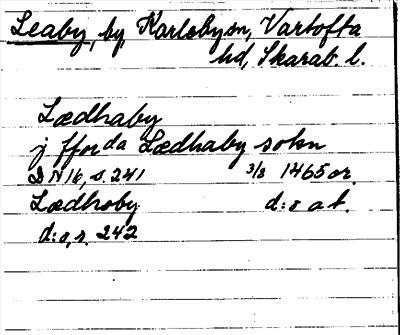 Leaby, by, Karlebysn, Vartofta
hd, Skarab. l.
Lædhaby
j fforda Lædhaby sokn
DN 16, s. 241 3/8 1465 or.
Lædhoby d:o at.
d:o, s. 242